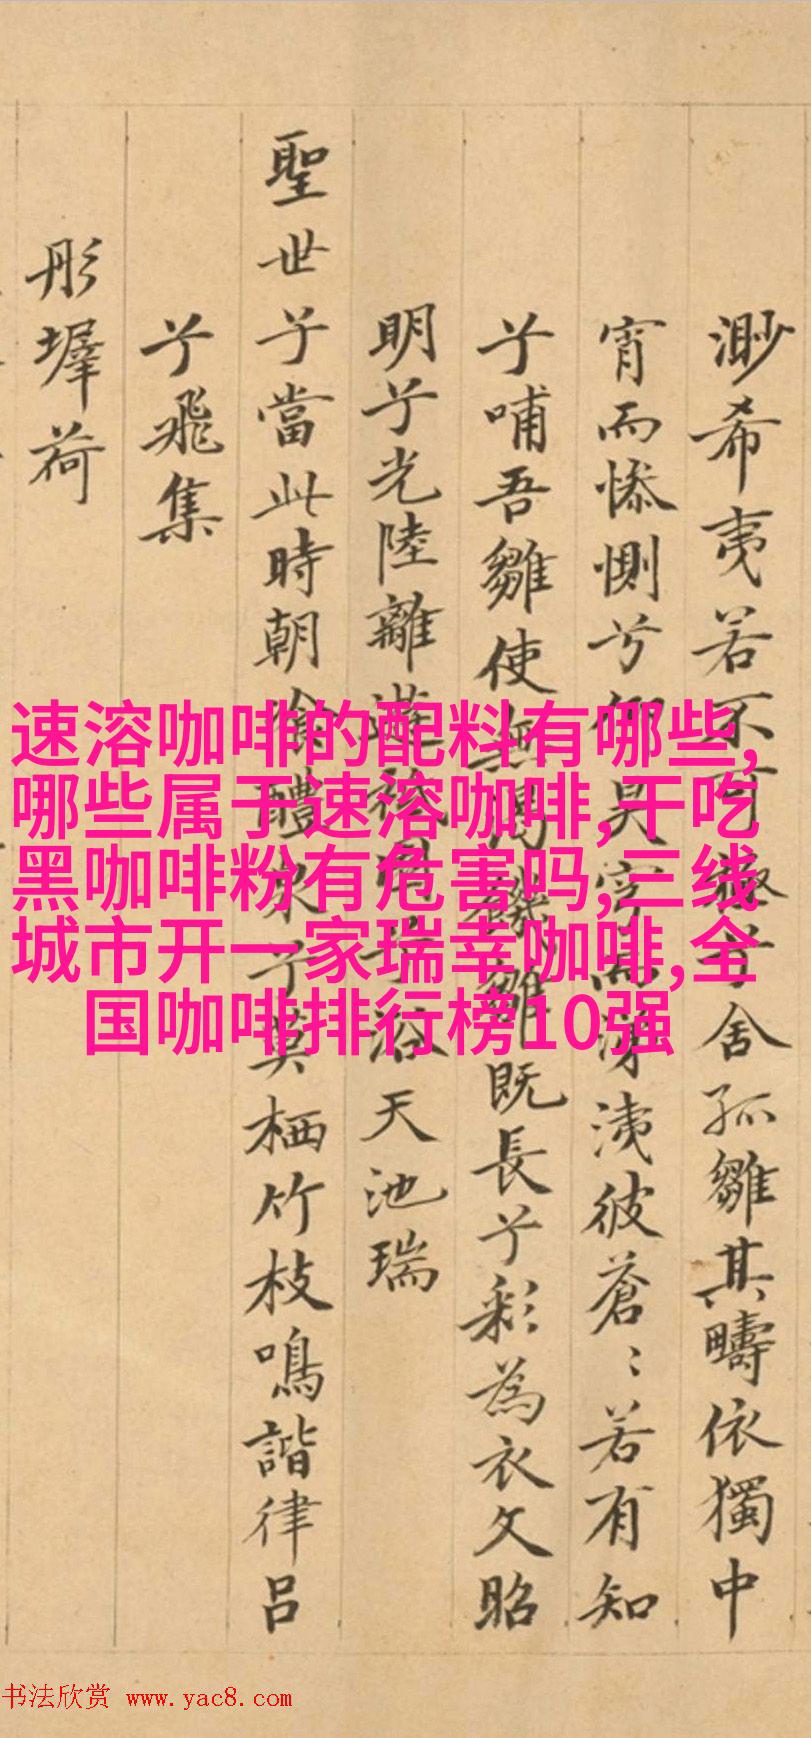 渺希夷若不可兮舍孤雛其疇依獨中
宵而惨惻兮仰昊穹涕洟彼蒼〻若有知
兮哺吾雛使無饑雛既長兮彩為衣文昭
明兮光陸離兮浴天池瑞
聖世兮當此時朝醴泉兮莫栖竹枝鳴諧律呂
兮飛集
彤墀荷
速溶咖啡的配料有哪些,
哪些属于速溶咖啡,干吃
黑咖啡粉有危害吗,三线
城市开一家瑞幸咖啡,全
国咖啡排行榜10强
书法欣赏 www.yac8.com